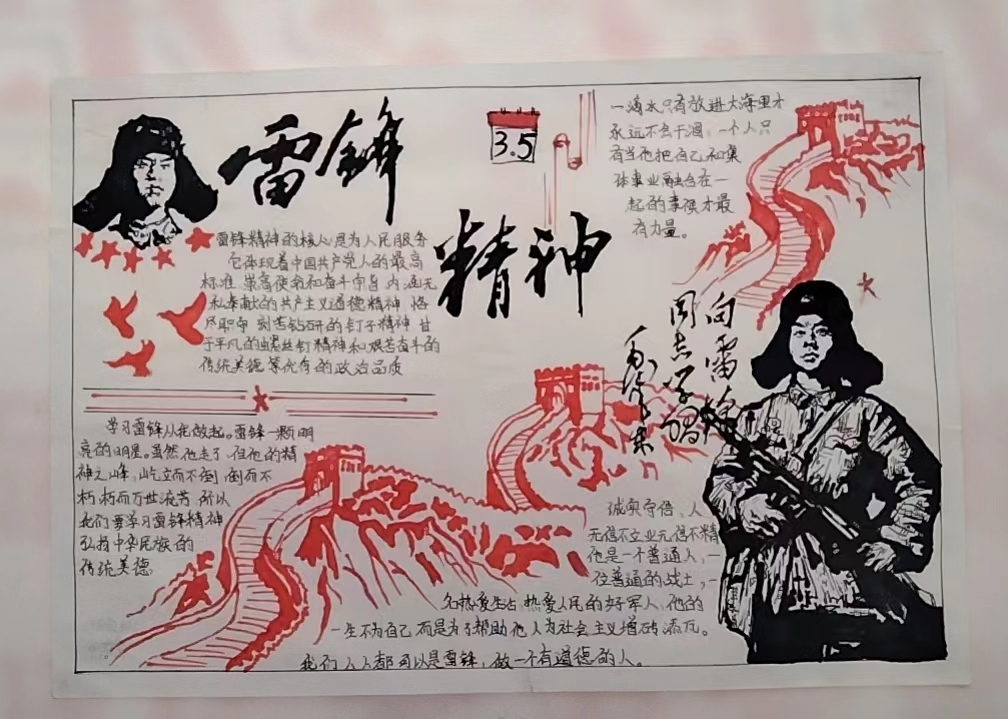 雷锋
精神
3.5
一滴水只有放进大海里才
永远不会干涸，一个人只
有当他把自己和集
体事业融合在一
起的事候才最
有力量。
雷锋精神的核心是为人民服务
它体现着中国共产党人的最高
标准 崇高使命和奋斗宗旨 内涵无
私奉献的共产主义道德精神 恪
尽职守 刻苦钻研的钉子精神 甘
于平凡的螺丝钉精神和艰苦奋斗的
传统美德等优秀的政治品质
向雷锋
同志学习
毛泽东
学习雷锋从我做起。雷锋一颗明
亮的明星。虽然他走了 但他的精
神之峰，屹立而不倒 倒而不
朽 朽而万世流芳 所以
我们要学习雷锋精神
弘扬中华民族的
传统美德
诚实守信，人
无信不立业无信不精
他是一个普通人，一
位普通的战士，一
名热爱生活 热爱人民的好军人 他的
一生不为自己 而是为了帮助他人为社会主义增砖添瓦。
我们人人都可以是雷锋，做一个有道德的人。